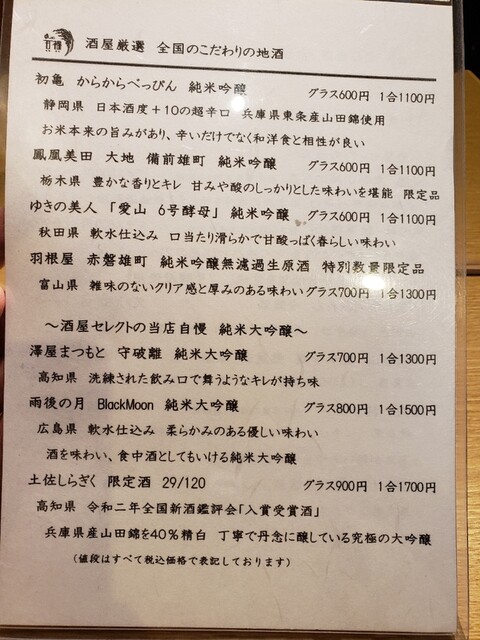 酒屋厳選 全国のこだわりの地酒
初亀 からからべっぴん 純米吟醸 グラス600円 1合1100円
静岡県 日本酒度+10の超辛口 兵庫県東条産山田錦使用
お米本来の旨みがあり、辛いだけでなく和洋食と相性が良い
鳳凰美田 大地 備前雄町 純米吟醸 グラス600円 1合1100円
栃木県 豊かな香りとキレ 甘みや酸のしっかりとした味わいを堪能 限定品
ゆきの美人 「愛山 6号酵母」 純米吟醸 グラス600円 1合1100円
秋田県 軟水仕込み 口当たり滑らかで甘酸っぱく春らしい味わい
羽根屋 赤磐雄町 純米吟醸無濾過生原酒 特別数量限定品
富山県 雑味のないクリア感と厚みのある味わい グラス700円 1合1300円
～酒屋セレクトの当店自慢 純米大吟醸～
澤屋まつもと 守破離 純米大吟醸 グラス700円 1合1300円
高知県 洗練された飲み口で舞うようなキレが持ち味
雨後の月 BlackMoon 純米大吟醸 グラス800円 1合1500円
広島県 軟水仕込み 柔らかみのある優しい味わい
酒を味わい、食中酒としてもいける純米大吟醸
土佐しらぎく 限定酒 29/120 グラス900円 1合1700円
高知県 令和二年全国新酒鑑評会「入賞受賞酒」
兵庫県産山田錦を40%精白 丁寧で丹念に醸している究極の大吟醸
(値段はすべて税込価格で表記しております)